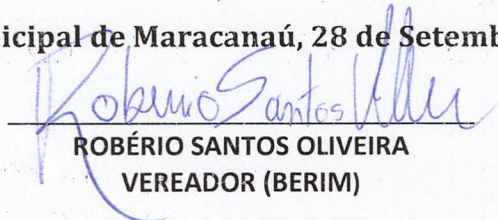 icipal de Maracanaú, 28 de Setemb
Robério Santos
ROBÉRIO SANTOS OLIVEIRA
VEREADOR (BERIM)